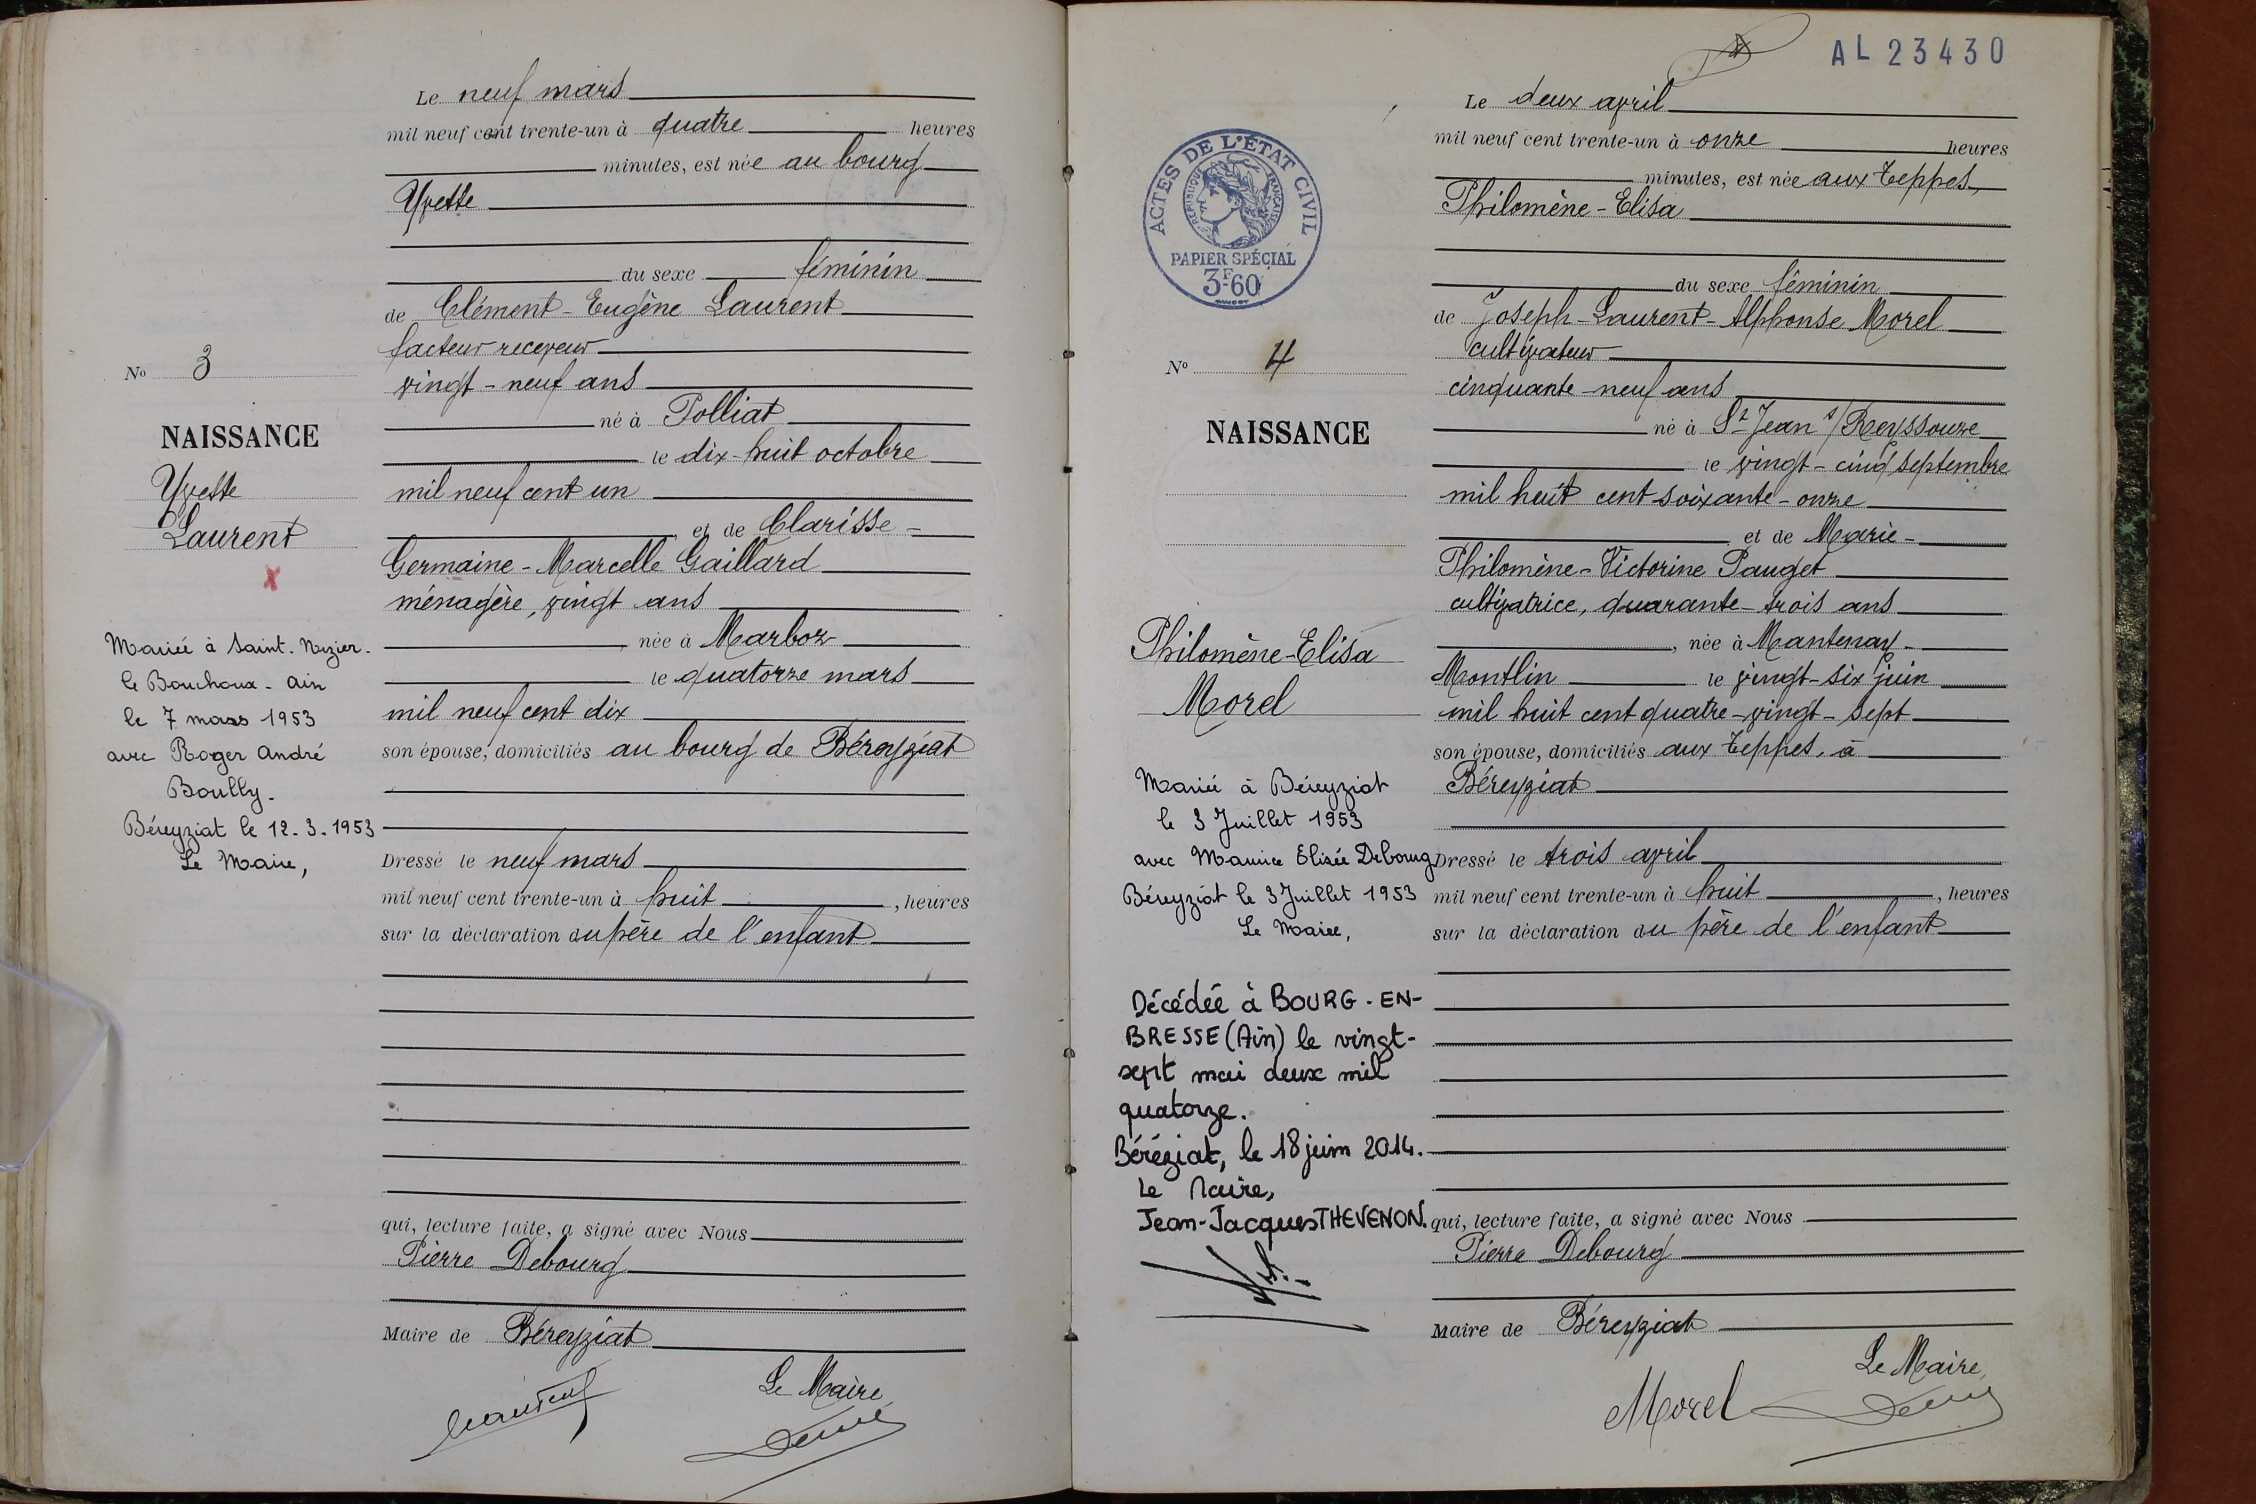 Le neuf mars
mil neuf cent trente-un à quatre heures
minutes, est née au bourg
Yvette
du sexe féminin
de Clément-Eugène Laurent
facteur receveur
vingt-neuf ans
né à Polliat
le dix-huit octobre
mil neuf cent un
et de Clarisse-
Germaine-Marcelle Gaillard
ménagère, vingt ans
née à Marboz
le quatorze mars
mil neuf cent dix
son épouse, domiciliés au bourg de Béreyziat
Dressé le neuf mars
mil neuf cent trente-un à huit, heures
sur la déclaration du père de l'enfant
qui, lecture faite, a signé avec Nous
Pierre Debourg
Maire de Béreyziat
Le Maire
No 3
NAISSANCE
Yvette
Laurent
x
Mariée à Saint-Nizier-
le Bouchoux-Ain
le 7 mars 1953
avec Roger André
Boully-
Béreyziat le 12-3-1953
Le Maire,
AL 23430
Le deux avril
mil neuf cent trente-un à onze heures
minutes, est née aux Teppes,
Philomène-Elisa
du sexe féminin
de Joseph-Laurent-Alphonse Morel
cultivateur
cinquante-neuf ans
né à St Jean s/Reyssouze
le vingt-cinq septembre
mil huit cent soixante-onze
et de Marie-
Philomène-Victorine Pauget
cultivatrice, quarante-trois ans
, née à Mantenay-
Montlin le vingt-six juin
mil huit cent quatre-vingt-sept
son épouse, domiciliés aux Teppes, à
Béreyziat
Dressé le trois avril
mil neuf cent trente-un à huit, heures
sur la déclaration du père de l'enfant
qui, lecture faite, a signé avec Nous
Pierre Debourg
Maire de Béreyziat
Le Maire,
Morel
ACTES DE L'ÉTAT CIVIL
RÉPUBLIQUE FRANÇAISE
PAPIER SPÉCIAL
3F.60
No 4
NAISSANCE
Philomène-Elisa
Morel
Mariée à Béreyziat
le 3 Juillet 1953
avec Maurice Elisée Debourg
Béreyziat le 3 Juillet 1953
Le Maire,
Décédée à BOURG-EN-
BRESSE (Ain) le vingt-
sept mai deux mil
quatorze.
Béréziat, le 18 juin 2014.
Le Maire,
Jean-Jacques THEVENON.